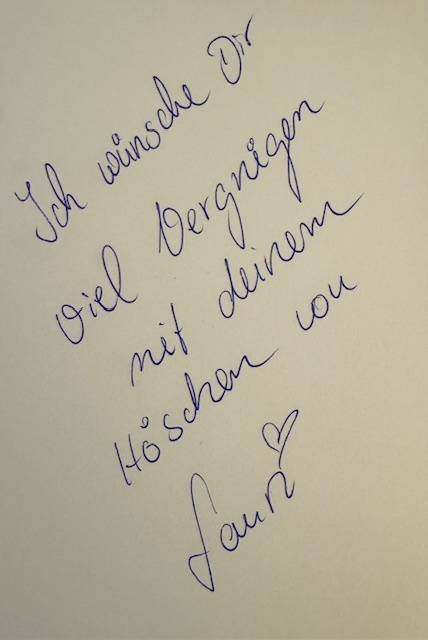 Ich wünsche Dir
viel Vergnügen
mit deinem
Höschen von